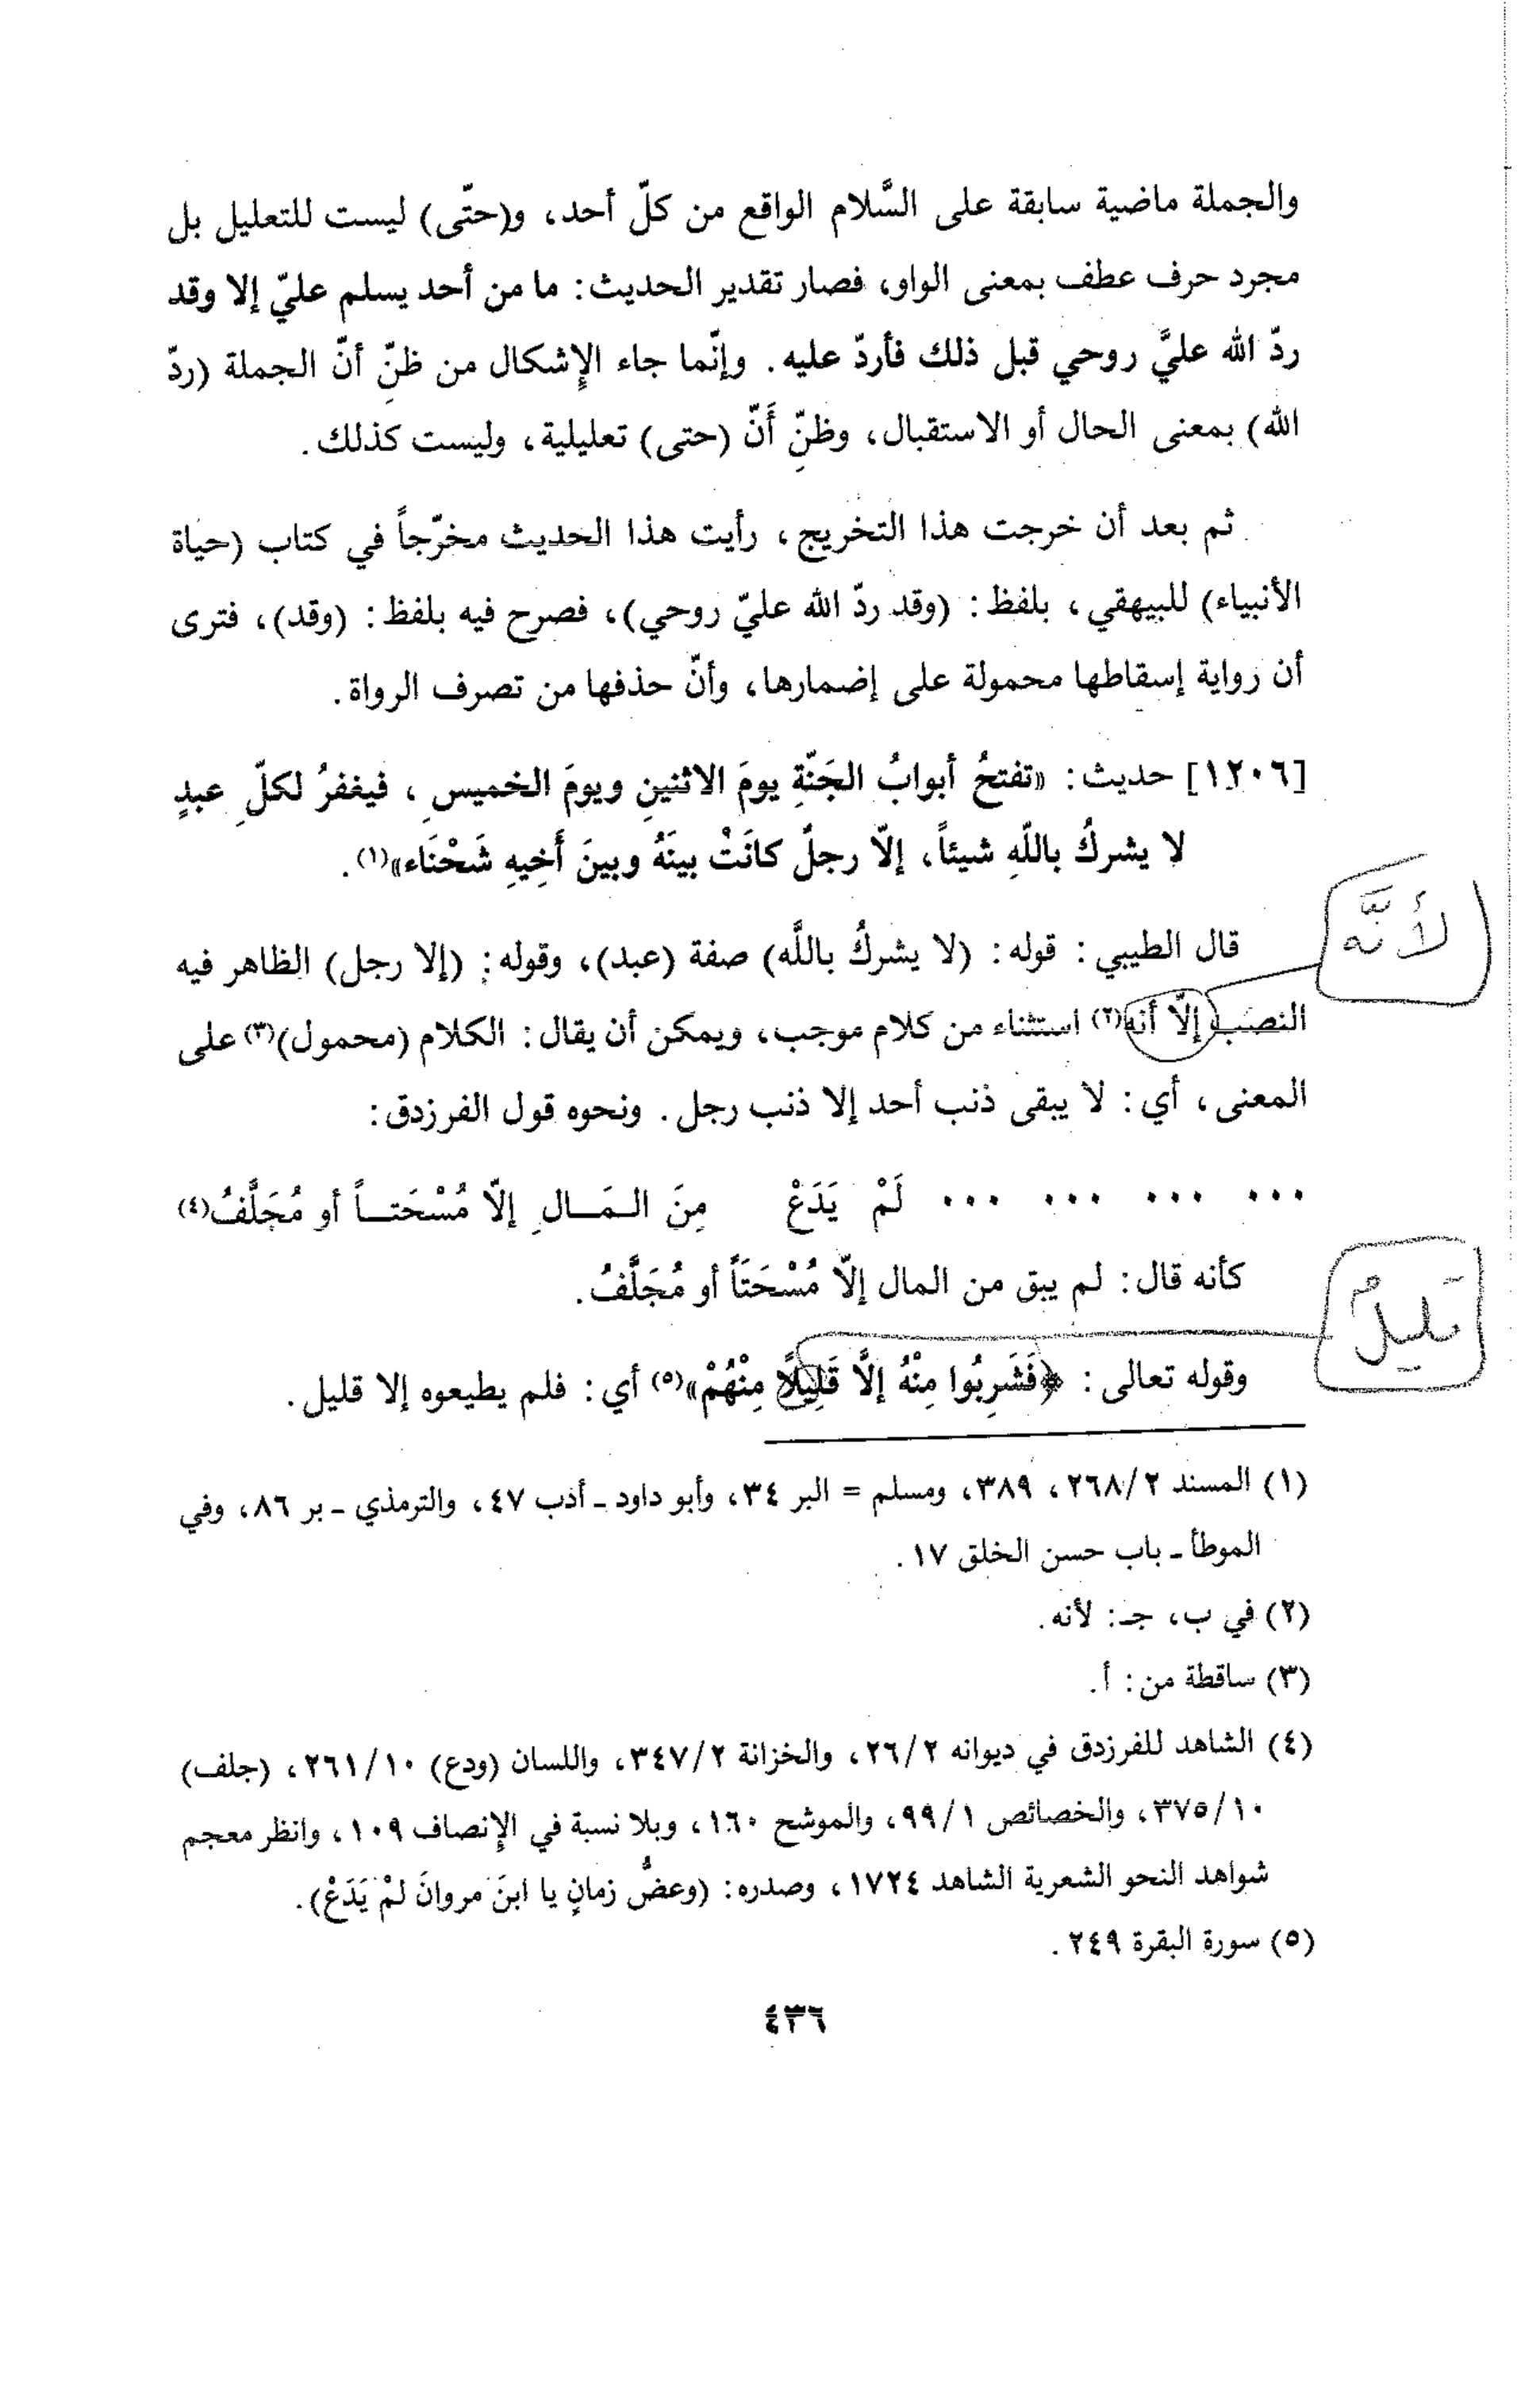 والجملة ماضية سابقة على السَّلام الواقع من كلّ أحد، و(حتّى) ليست للتعليل بل
مجرد حرف عطف بمعنى الواو، فصار تقدير الحديث: ما من أحد يسلم عليّ إلا وقد
ردّ الله عليَّ روحي قبل ذلك فأردّ عليه. وإنّما جاء الإشكال من ظنّ أنّ الجملة (ردّ
الله) بمعنى الحال أو الاستقبال، وظنِّ أَنّ (حتى) تعليلية، وليست كذلك.
ثم بعد أن خرجت هذا التخريج، رأيت هذا الحديث مخرّجاً في كتاب (حياة
الأنبياء) للبيهقي، بلفظ: (وقد ردّ الله عليّ روحي)، فصرح فيه بلفظ: (وقد)، فترى
أن رواية إسقاطها محمولة على إضمارها، وأنّ حذفها من تصرف الرواة.
[١٢٠٦] حديث: «تفتحُ أبوابُ الجَنّةِ يومَ الاثنينِ ويومَ الخميسِ، فيغفرُ لكلّ عبدٍ
لا يشركُ باللّهِ شيئاً، إلاّ رجلٌ كانَتْ بينَهُ وبينَ أَخِيهِ شَحْنَاء»(١).
لأنَّه
قال الطيبي: قوله: (لا يشركُ باللَّه) صفة (عبد)، وقوله: (إلا رجل) الظاهر فيه
النصب إلاّ أنه(٢) استثناء من كلام موجب، ويمكن أن يقال: الكلام (محمول)(٣) على
المعنى، أي: لا يبقى ذنب أحد إلا ذنب رجل. ونحوه قول الفرزدق:
... ... ... ... لَمْ يَدَعْ مِنَ الـمَـالِ إلاّ مُسْحَتـاً أو مُجَلَّفُ(٤)
كأنه قال: لم يبق من المال إلاّ مُسْحَتَاً أو مُجَلَّفُ.
قليلٌ
وقوله تعالى: ﴿فَشَرِبُوا مِنْهُ إلَّا قَلِيلًا مِنْهُمْ»(٥) أي: فلم يطيعوه إلا قليل.
(١) المسند ٢/ ٢٦٨، ٣٨٩، ومسلم = البر ٣٤، وأبو داود ـ أدب ٤٧، والترمذي ـ بر ٨٦، وفي
الموطأ ـ باب حسن الخلق ١٧.
(٢) في ب، جـ: لأنه.
(٣) ساقطة من: أ.
(٤) الشاهد للفرزدق في ديوانه ٢/ ٢٦، والخزانة ٢/ ٣٤٧، واللسان (ودع) ١٠/ ٢٦١، (جلف)
١٠/ ٣٧٥، والخصائص ١/ ٩٩، والموشح ١٦٠، وبلا نسبة في الإنصاف ١٠٩، وانظر معجم
شواهد النحو الشعرية الشاهد ١٧٢٤، وصدره: (وعضُّ زمانٍ يا ابنَ مروانَ لمْ يَدَعْ).
(٥) سورة البقرة ٢٤٩.
٤٣٦